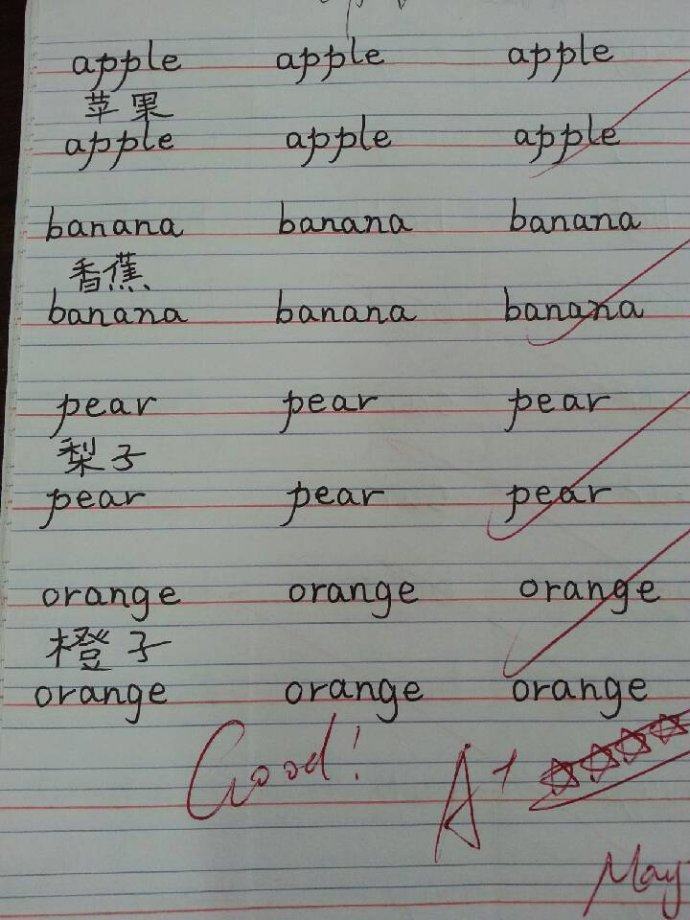 apple apple apple
苹果
apple apple apple
banana banana banana
香蕉
banana banana banana
pear pear pear
梨子
pear pear pear
orange orange orange
橙子
orange orange orange
Good! A+
May